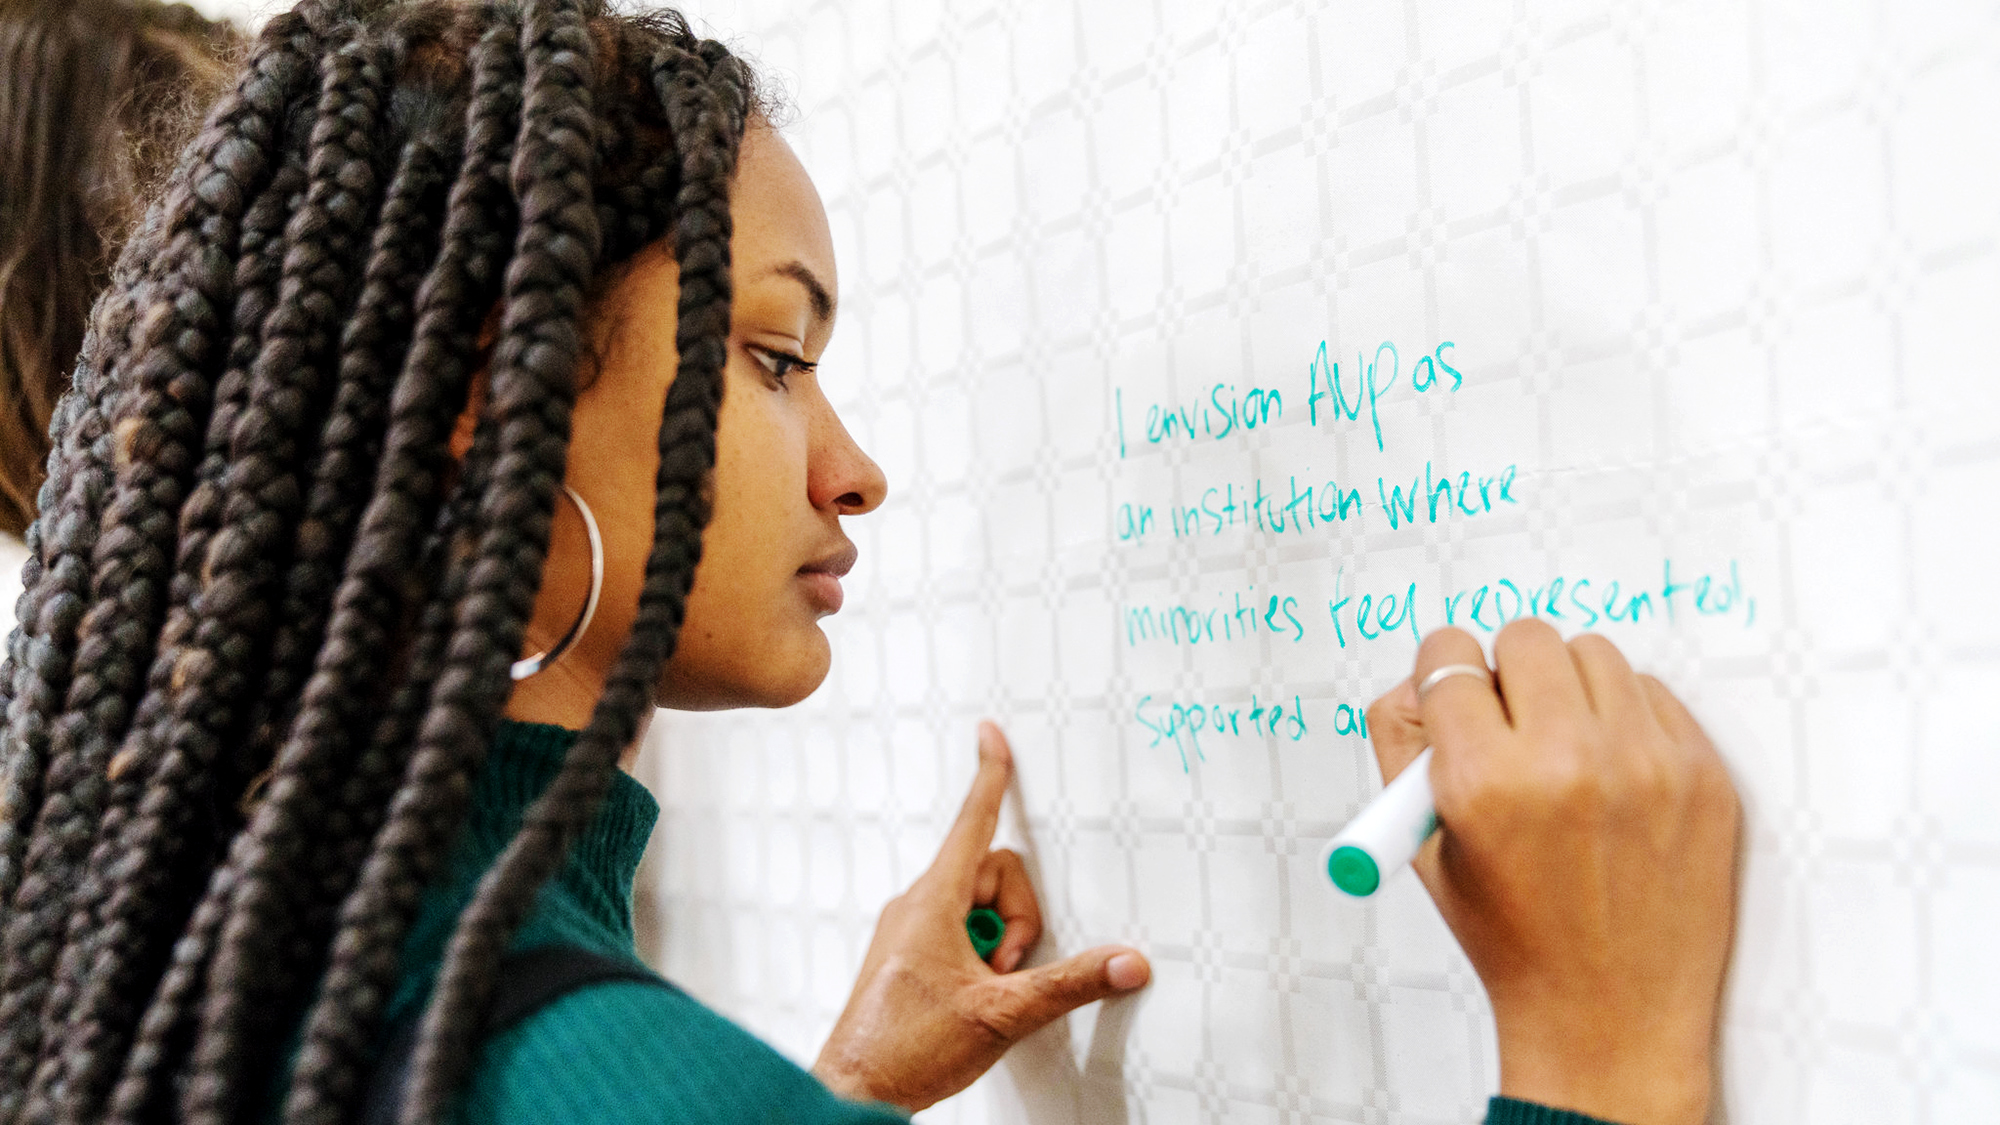 I envision AUP as
an institution where
minorities feel represented,
supported an